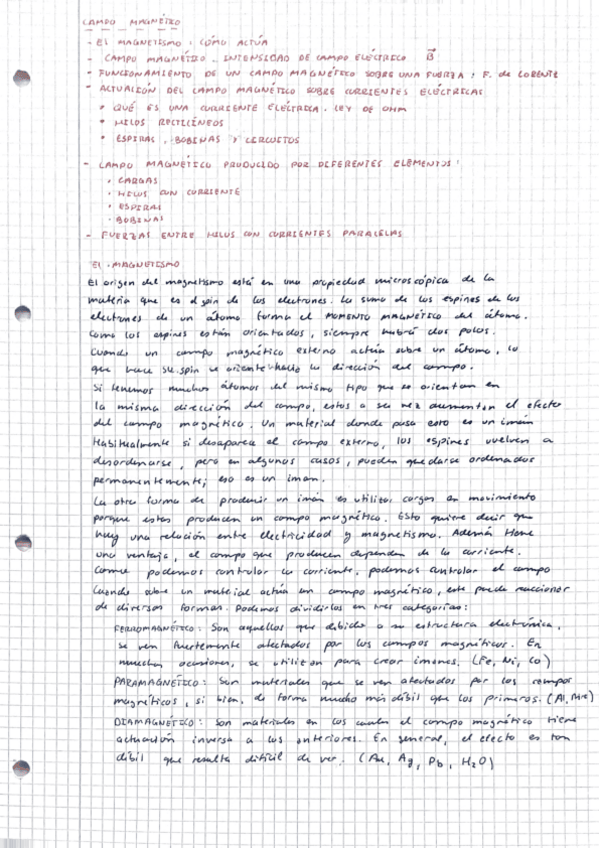 CAMPO MAGNÉTICO
- EL MAGNETISMO: CÓMO ACTÚA
- CAMPO MAGNÉTICO. INTENSIDAD DE CAMPO ELÉCTRICO B
- FUNCIONAMIENTO DE UN CAMPO MAGNÉTICO SOBRE UNA FUERZA: F. de LORENTZ
- ACTUACIÓN DEL CAMPO MAGNÉTICO SOBRE CORRIENTES ELÉCTRICAS
• QUÉ ES UNA CORRIENTE ELÉCTRICA. LEY DE OHM
• HILOS RECTILÍNEOS
• ESPIRAS, BOBINAS Y CIRCUITOS
- CAMPO MAGNÉTICO PRODUCIDO POR DIFERENTES ELEMENTOS:
• CARGAS
• HILOS CON CORRIENTE
• ESPIRAS
• BOBINAS
- FUERZAS ENTRE HILOS CON CORRIENTES PARALELAS
EL MAGNETISMO
El origen del magnetismo está en una propiedad microscópica de la
materia que es el spin de los electrones. La suma de los espines de los
electrones de un átomo forma el MOMENTO MAGNÉTICO del átomo.
Como los espines están orientados, siempre habrá dos polos.
Cuando un campo magnético externo actúa sobre un átomo, lo
que hace su spin se oriente hacia la dirección del campo.
Si tenemos muchos átomos del mismo tipo que se orientan en
la misma dirección del campo, estos a su vez aumentan el efecto
del campo magnético. Un material donde pasa esto es un imán
Habitualmente si desaparece el campo externo, los espines vuelven a
desordenarse, pero en algunos casos, pueden quedarse ordenados
permanentemente; eso es un iman.
La otra forma de producir un imán es utilizar cargas en movimiento
porque estas producen un campo magnético. Esto quiere decir que
hay una relación entre electricidad y magnetismo. Además tiene
una ventaja, el campo que producen dependen de la corriente.
Como podemos controlar la corriente, podemos controlar el campo
Cuando sobre un material actúa un campo magnético, este puede reaccionar
de diversas formas. Podemos dividirlos en tres categorías:
FERROMAGNÉTICO: Son aquellos que debido a su estructura electrónica,
se ven fuertemente afectados por los campos magnéticos. En
muchas ocasiones, se utilizan para crear imanes. (Fe, Ni, Co)
PARAMAGNÉTICO: Son materiales que se ven afectados por los campos
magnéticos, si bien, de forma mucho más débil que los primeros. (Al,
DIAMAGNÉTICO: Son materiales en los cuales el campo magnético tiene
actuación inversa a los anteriores. En general, el efecto es tan
débil que resulta difícil de ver. (Au, Ag, Pb, H2O)